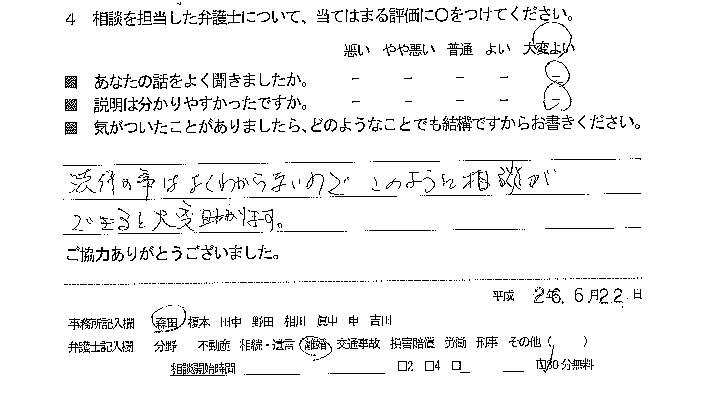 4 相談を担当した弁護士について、当てはまる評価に〇をつけてください。
悪い やや悪い 普通 よい 大変よい
▩ あなたの話をよく聞きましたか。 － － － － －
▩ 説明は分かりやすかったですか。 － － － － －
▩ 気がついたことがありましたら、どのようなことでも結構ですからお書きください。
法律の事はよくわからないので このように相談が
できると大変助かります。
ご協力ありがとうございました。
平成 26.6月22.日
事務所記入欄 森田 榎本 田中 野田 相川 眞中 申 吉川
弁護士記入欄 分野 不動産 相続・遺言 離婚 交通事故 損害賠償 労働 刑事 その他( )
相談開始時間 □2 □4 30分無料